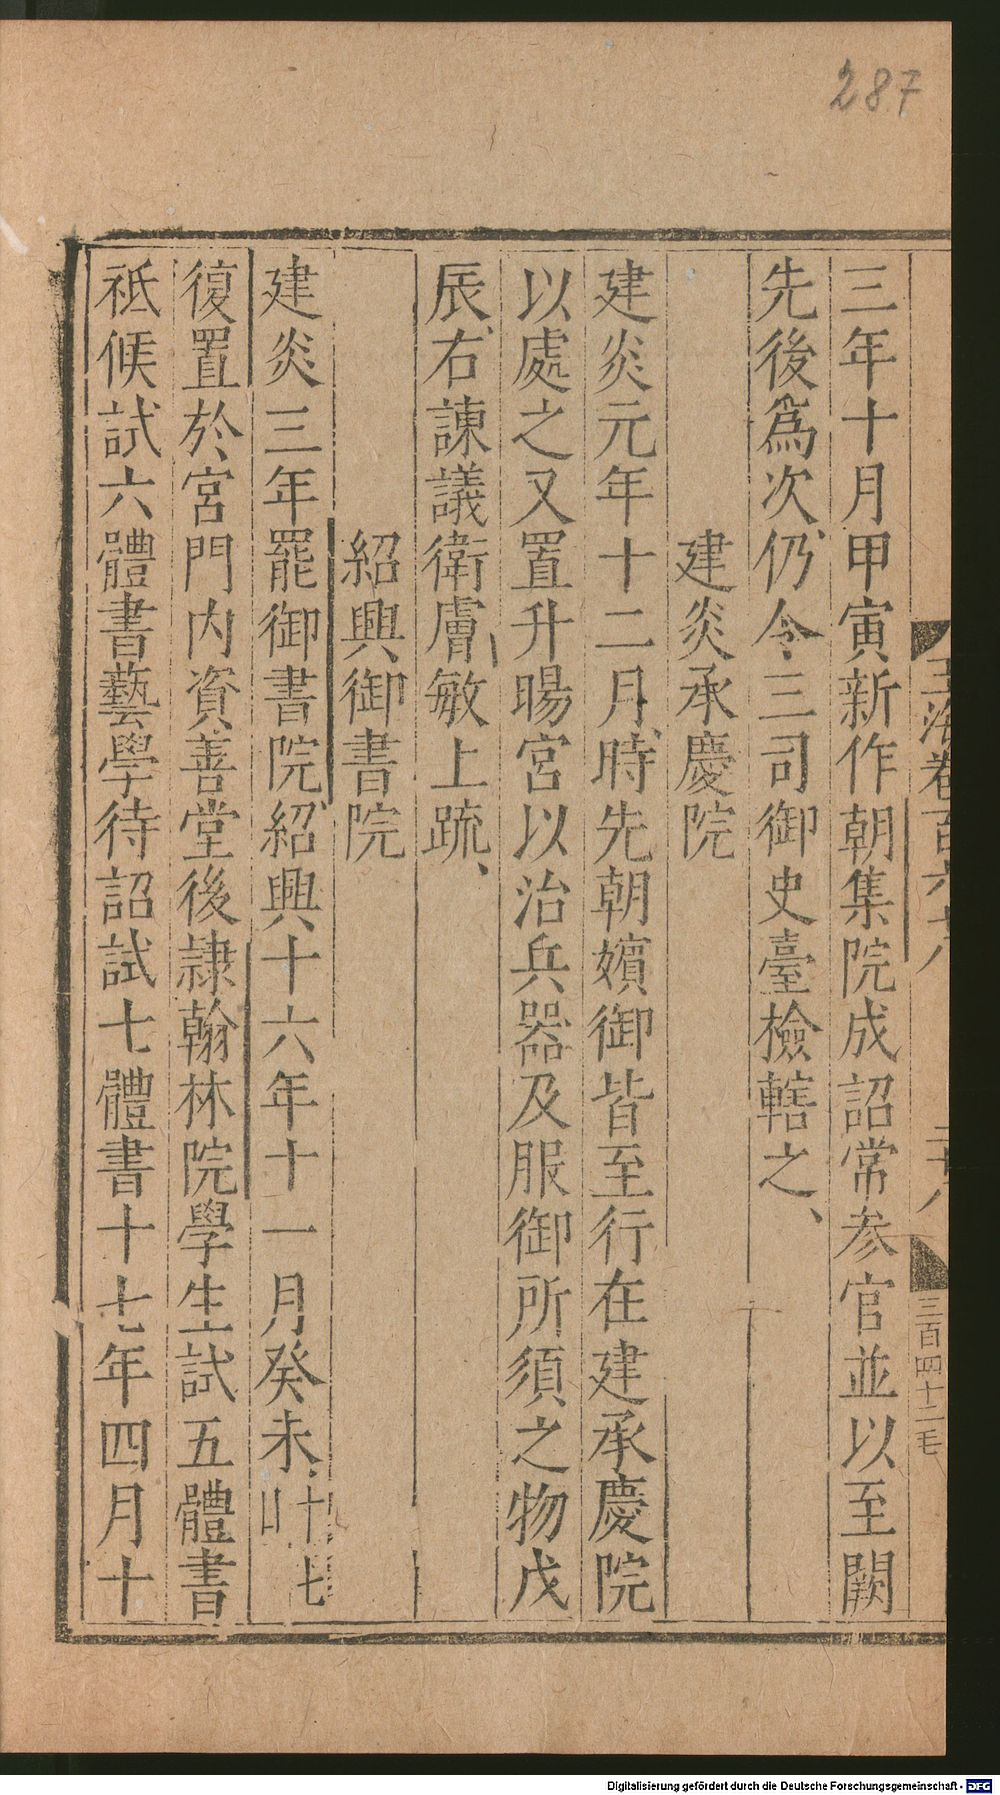 287
玉海卷百六十八
二十八
三百四十二毛
三年十月甲寅新作朝集院成詔常参官並以至闕
先後爲次仍令三司御史臺檢轄之、
建炎承慶院
建炎元年十二月時先朝嬪御皆至行在建承慶院
以處之又置升暘宮以治兵器及服御所須之物戊
辰右諫議衛膚敏上疏、
紹興御書院
建炎三年罷御書院紹興十六年十一月癸未十七
復置於宮門内資善堂後隷翰林院學生試五體書
祗候試六體書藝學待詔試七體書十七年四月十
Digitalisierung gefördert durch die Deutsche Forschungsgemeinschaft - DFG